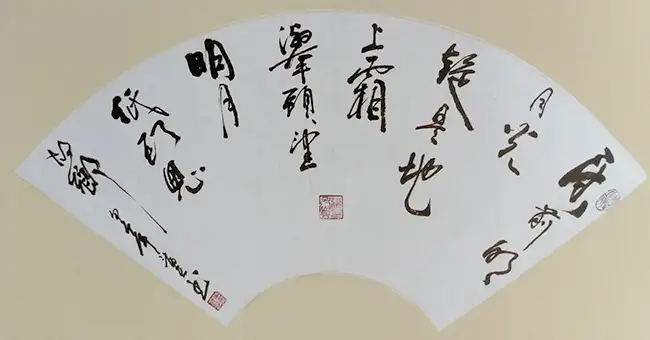 床前明
月光
疑是地
上霜
舉頭望
明月
低头思
故鄉